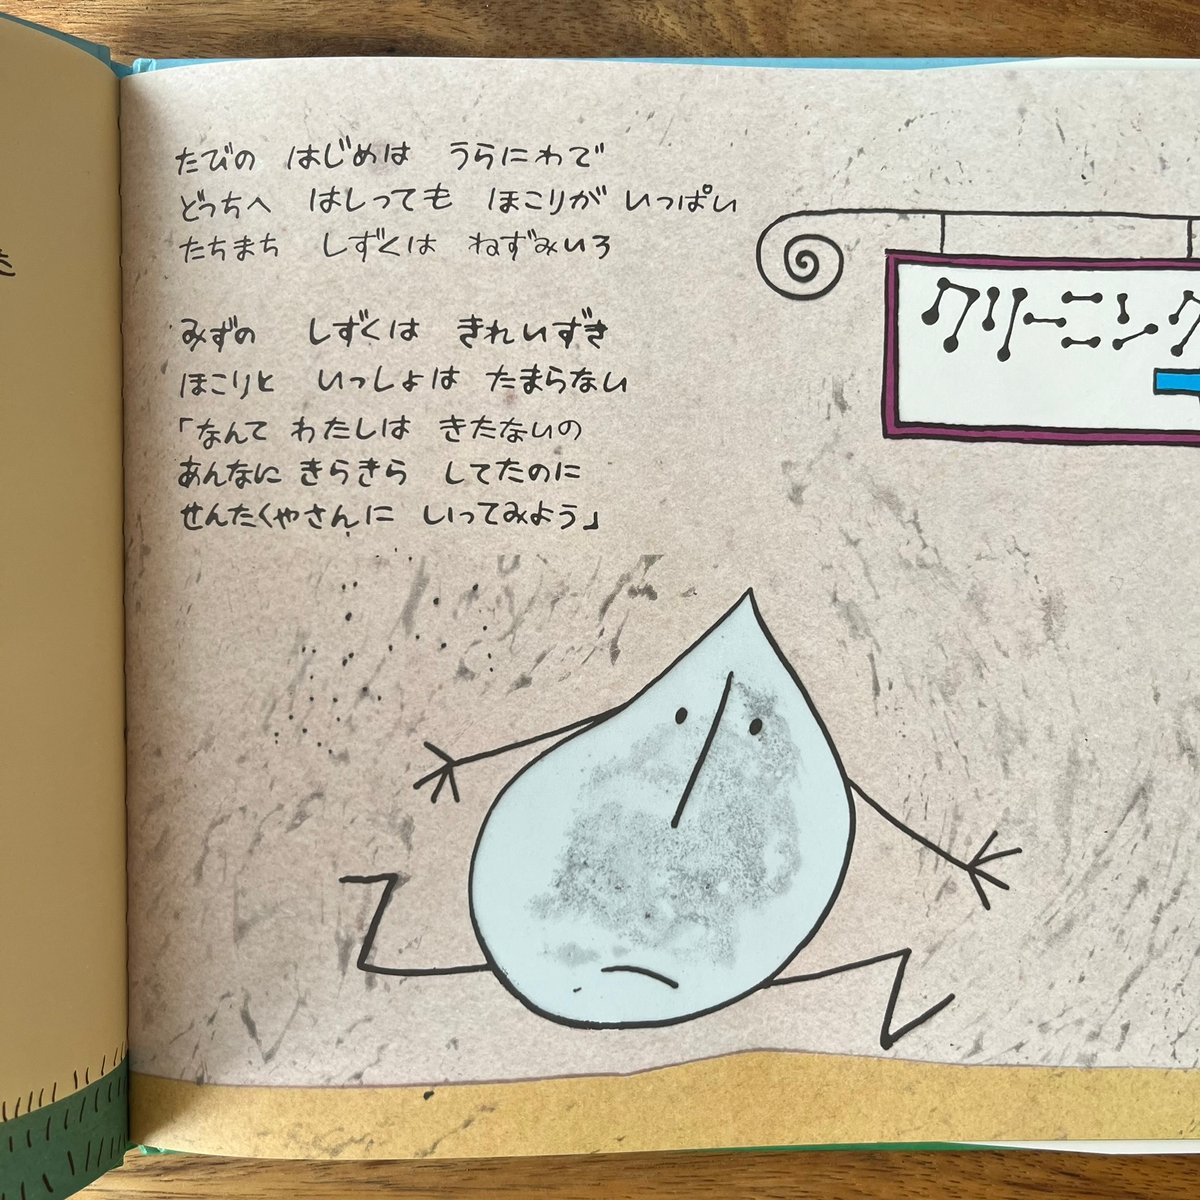 たびの はじめは うらにわで
どっちへ はしっても ほこりが いっぱい
たちまち しずくは ねずみいろ
みずの しずくは きれいずき
ほこりと いっしょは たまらない
「なんて わたしは きたないの
あんなに きらきら してたのに
せんたくやさんに いってみよう」
クリーニング